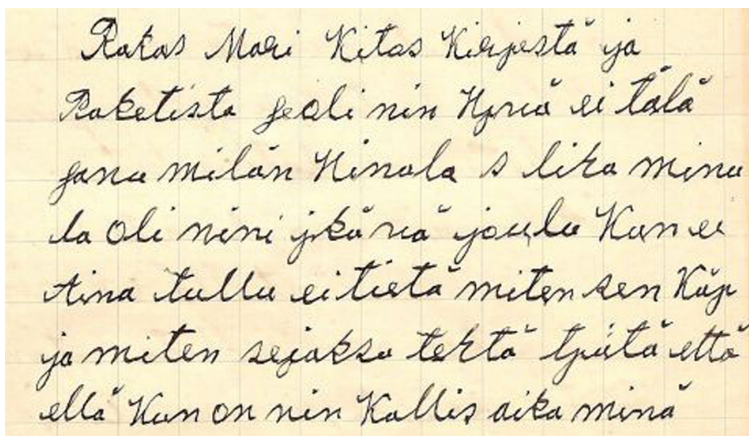 Rakas Mari Kitos Kirjestä ja
Paketista se oli nin Hyvä ei tälä
sanu milän Hinala s lika minu
la oli nini ikävä joulu Kun ei
Aina tullu ei tietä miten sen Käy
ja miten sejaksa tehtä työtä että
ellä Kun on nin Kallis aika minä